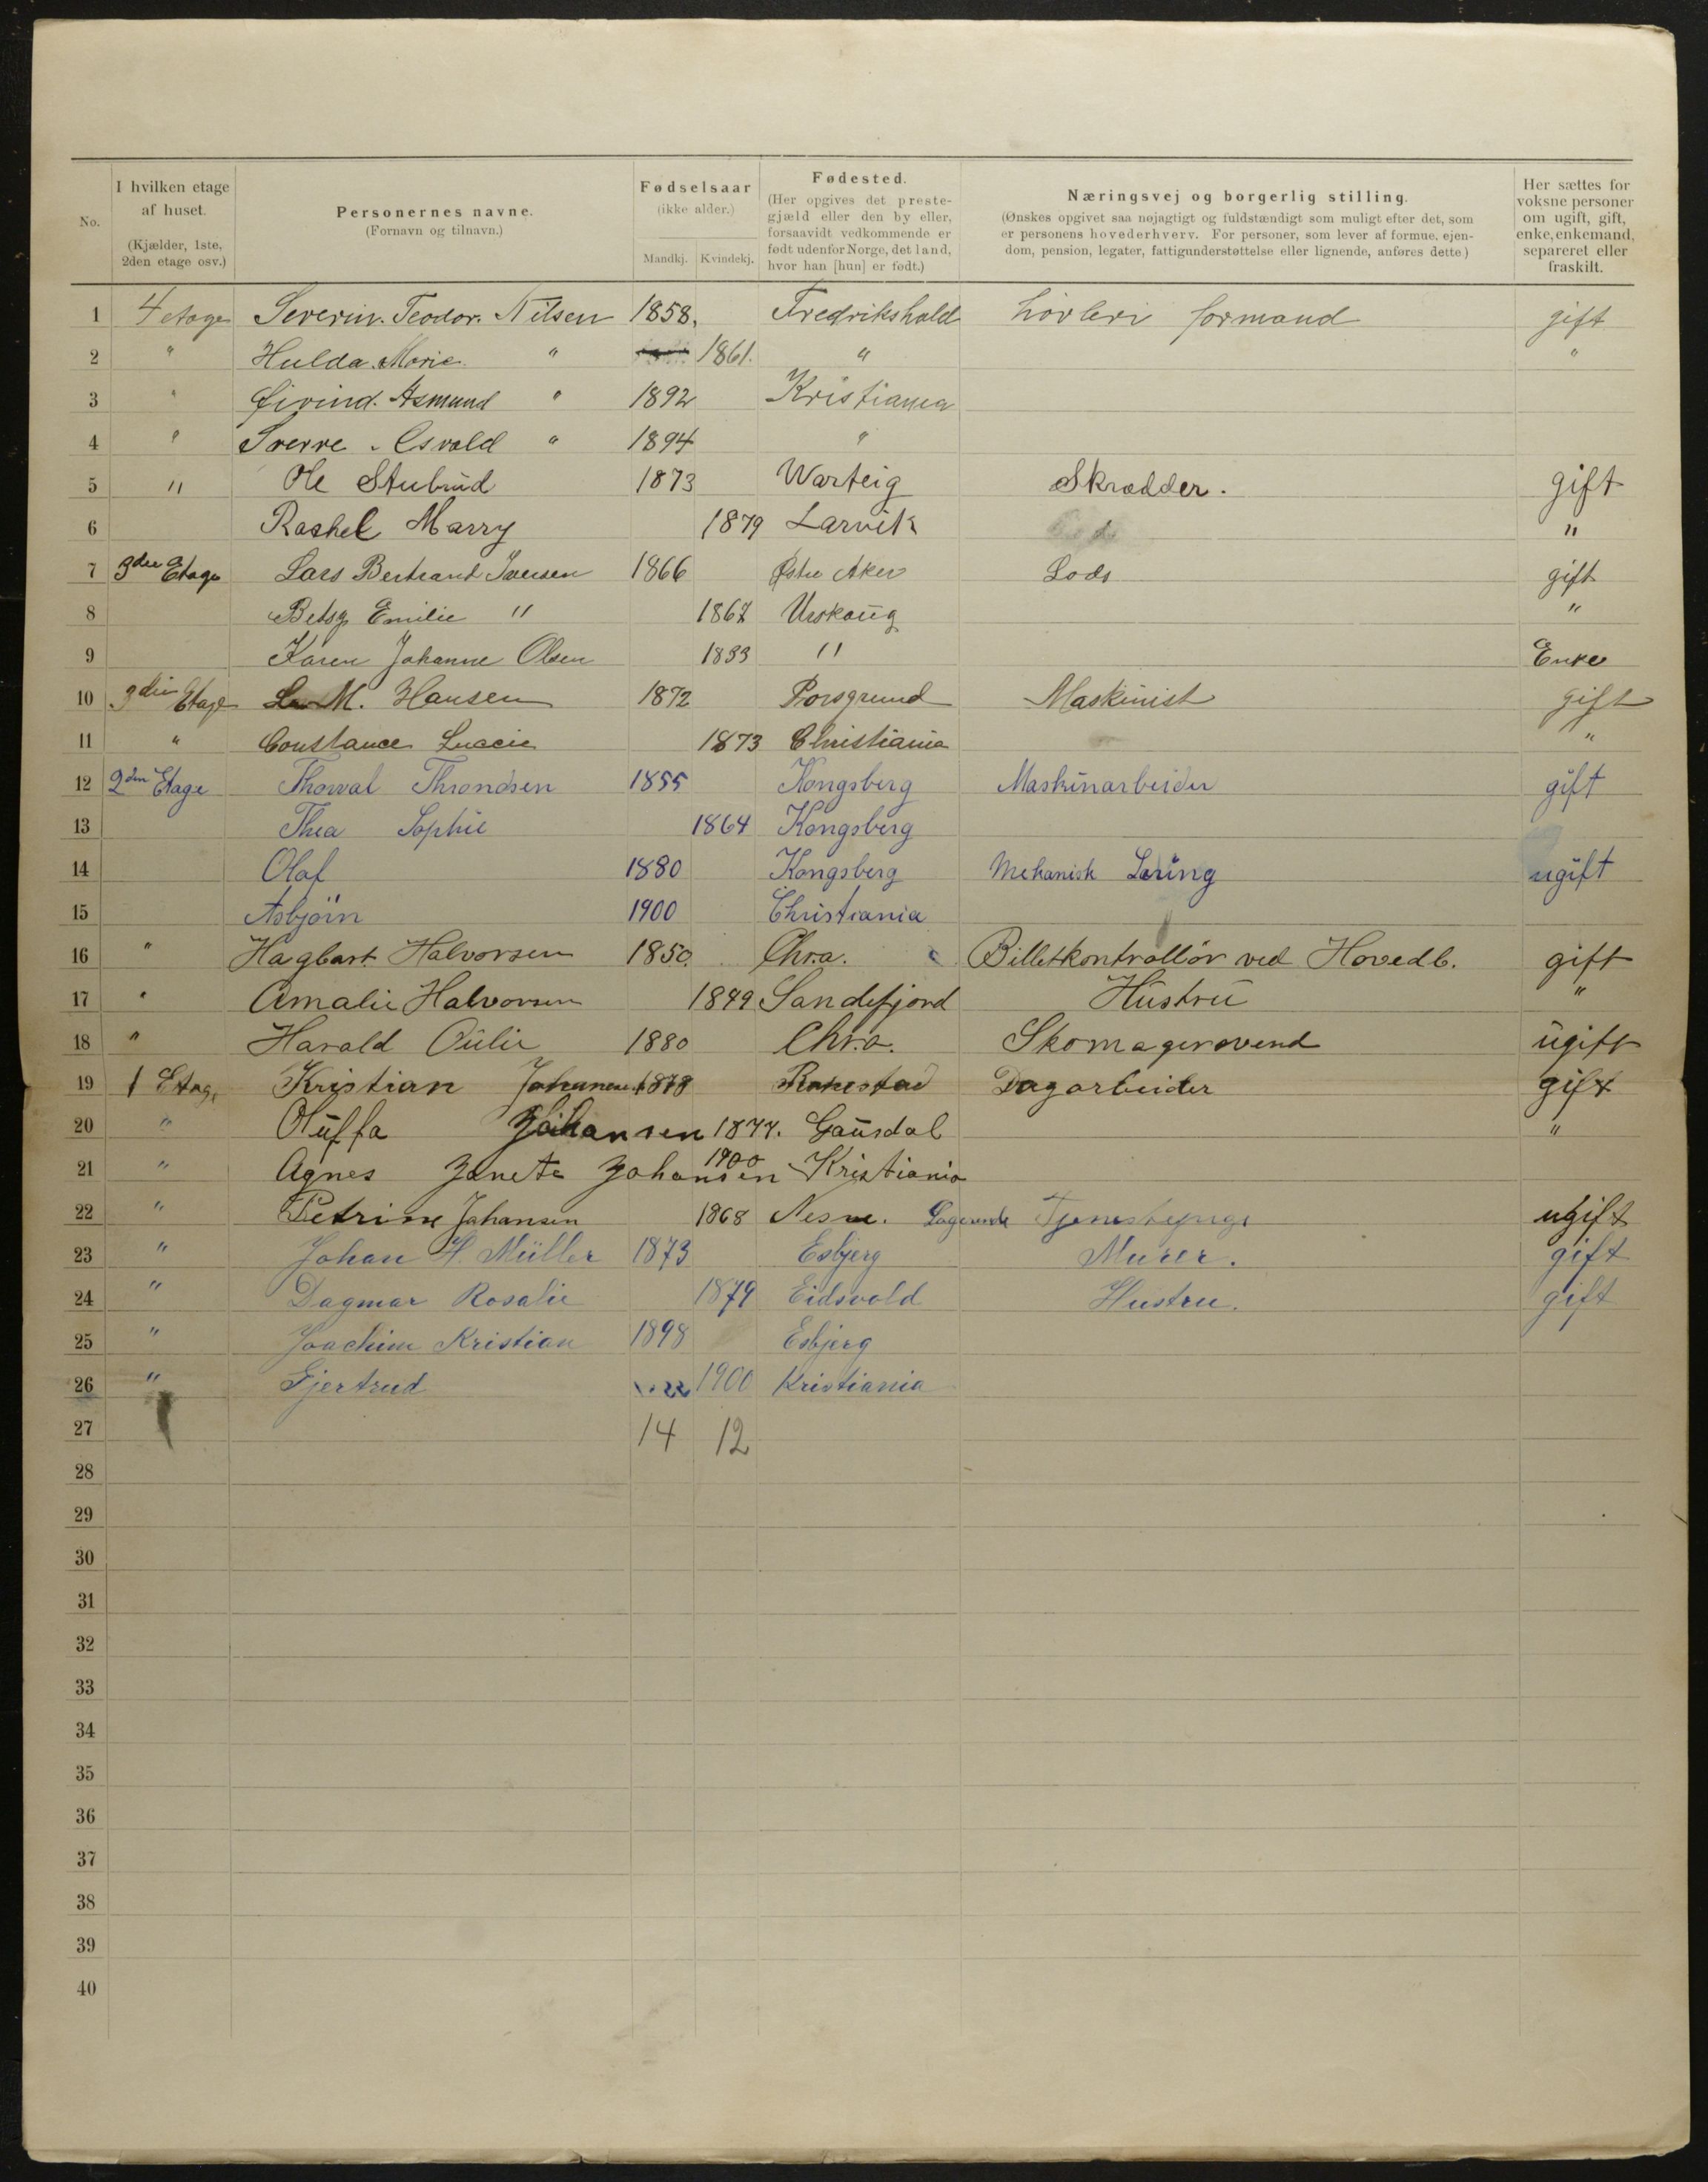 No.
I hvilken etage
af huset.
(Kjælder, 1ste,
2den etage osv.)
Personernes navne.
(Fornavn og tilnavn.)
Fødselsaar
(ikke alder.)
Mandkj. Kvindekj.
Fødested.
(Her opgives det preste-
gjæld eller den by eller,
forsaavidt vedkommende er
født udenfor Norge, det land,
hvor han [hun] er født.)
Næringsvej og borgerlig stilling.
(Ønskes opgivet saa nøjagtigt og fuldstændigt som muligt efter det, som
er personens hovederhverv. For personer, som lever af formue, ejen-
dom, pension, legater, fattigunderstøttelse eller lignende, anføres dette)
Her sættes for
voksne personer
om ugift, gift,
enke, enkemand,
separeret eller
fraskilt.
1 4 etage Severin. Teodor. Nilsen 1858. Fredrikshald høvleri formand gift
2 " Hulda. Marie. " 1861. " "
3 " Øivind. Asmund " 1892 Kristiania
4 " Sverre. Osvald " 1894 "
5 " Ole Stubrud 1873 Warteig Skrædder. gift
6 Rachel Marry 1879 Larvik "
7 3die Etage Lars Bertrand Iversen 1866 Østre Aker Lods gift
8 Betsy Emilie " 1867 Urskoug "
9 Karen Johanne Olsen 1833 " Enke
10 3die Etage M. Hansen 1872 Porsgrund Maskinist gift
11 " Constance Luccie 1873 Christiania "
12 2den Etage Thorval Throndsen 1855 Kongsberg Maskinarbeider gift
13 Thea Sophie 1864 Kongsberg
14 Olaf 1880 Kongsberg Mekanisk Læring ugift
15 Asbjörn 1900 Christiania
16 " Hagbart Halvorsen 1850. Chr.a. Billetkontrollör ved Hovedb. gift
17 " Amalie Halvorsen 1849 Sandefjord Hustru "
18 " Harald Oulie 1880 Chr.a. Skomagersvend ugift
19 1 Etag. Kristian Johansen 1878 Dagarbeider gift
20 " Oluffa Johansen 1877. Gausdal "
21 " Agnes Janete Johansen 1900 Kristiania
22 " Petrine Johansen 1868 Nesne. Logerende ugift
23 " Johan H. Müller 1873 Esbjerg Murer. gift
24 " Dagmar Rosalie 1879 Eidsvold Hustru. gift
25 " Joachim Kristian 1898 Esbjerg
26 " Gjertrud 1900 Kristiania
27 14 12
28
29
30
31
32
33
34
35
36
37
38
39
40